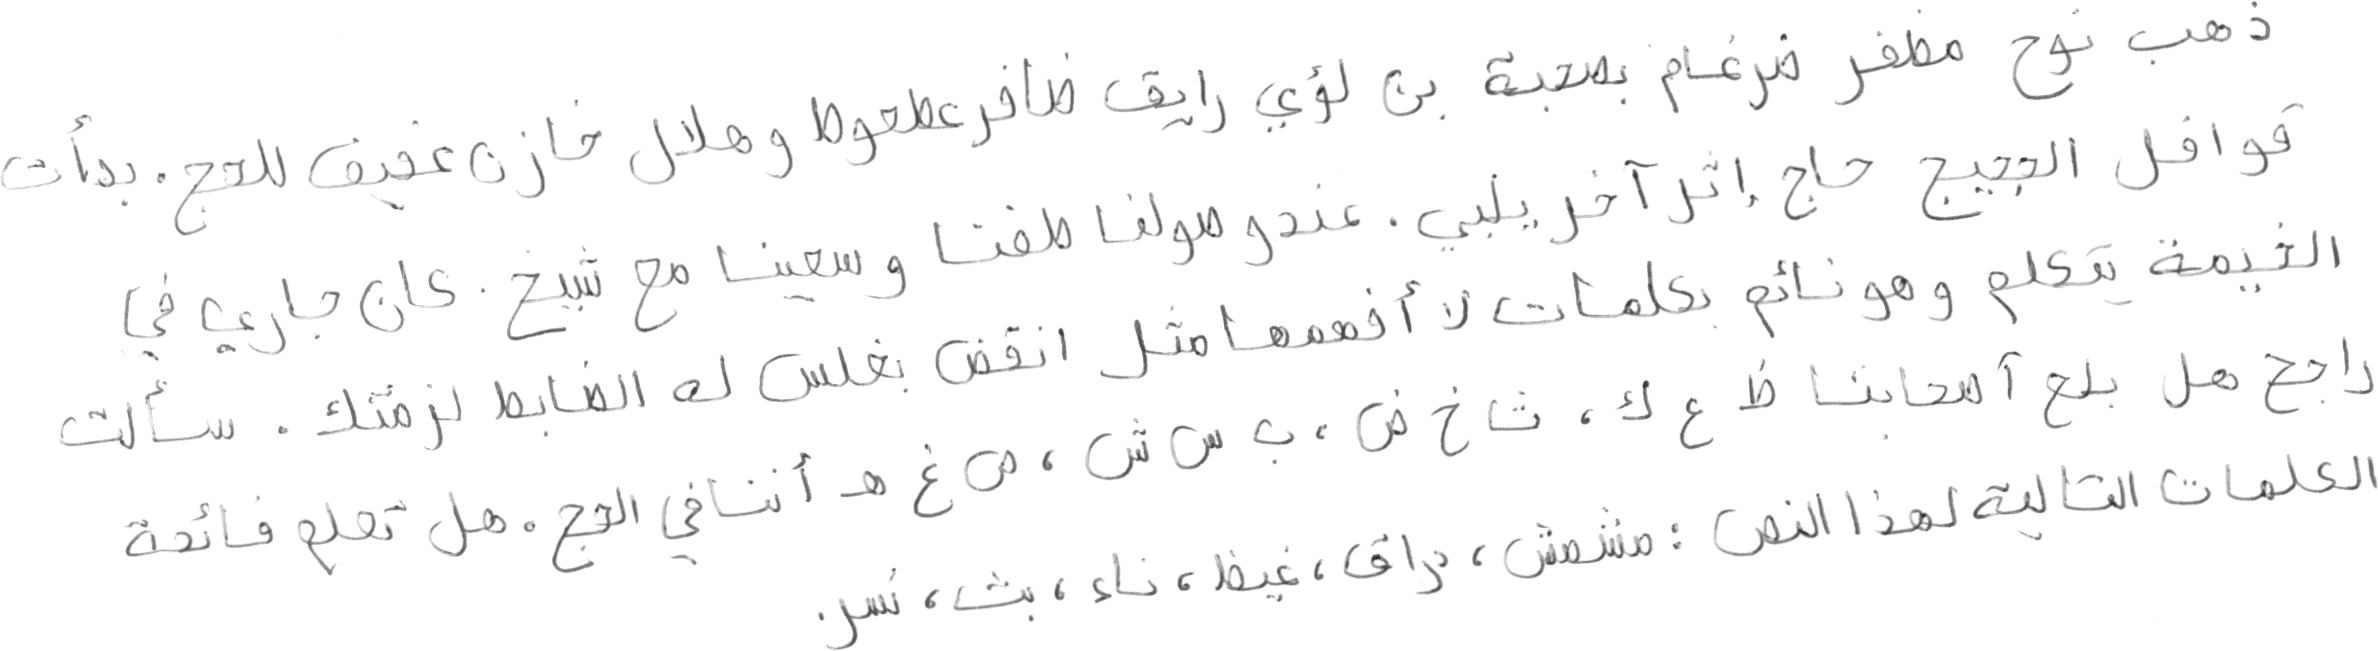 ذهب نوح مظفر ضرغام بصحبة بن لؤي رايق ظافر عطعوط وهلال خازن عفيف للحج. بدأت
قوافل الحجيج حاج إثر آخر يلبي. عند وصولنا طفنا وسعينا مع شيخ. كان جاري في
الخيمة يتكلم وهو نائم بكلمات لا أفهمها مثل انقض بغلس له الضابط لزمتك. سألت
راجح هل بلغ أصحابنا ظ ع ك، ث خ ض، ب س ش، ص غ هـ أننا في الحج. هل تعلم فائدة
الكلمات التالية لهذا النص: مشمش، براق، غيظ، ناء، بث، نسر.